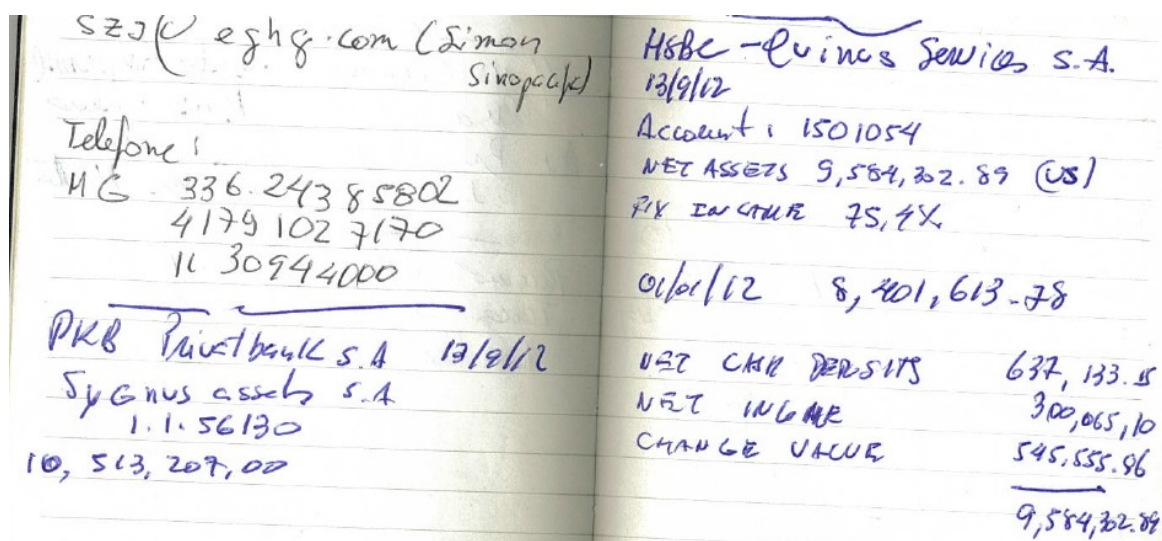 szj@eghg.com (Simon
Sinopack)
Telefone:
MG 336.24385802
4179 102 7170
11 30944000
PKB Privatbank S.A 13/9/12
Sygnus assets S.A
1.1.56130
10,513,207,00
HSBC - Quinus Services S.A.
13/9/12
Account: 1501054
NET ASSETS 9,584,302.89 (US)
FIX INCOME 75,4%
01/01/12 8,401,613.78
NET CASH DEPOSITS 637,133.15
NET INCOME 300,065,10
CHANGE VALUE 545,555.96
9,584,302.89